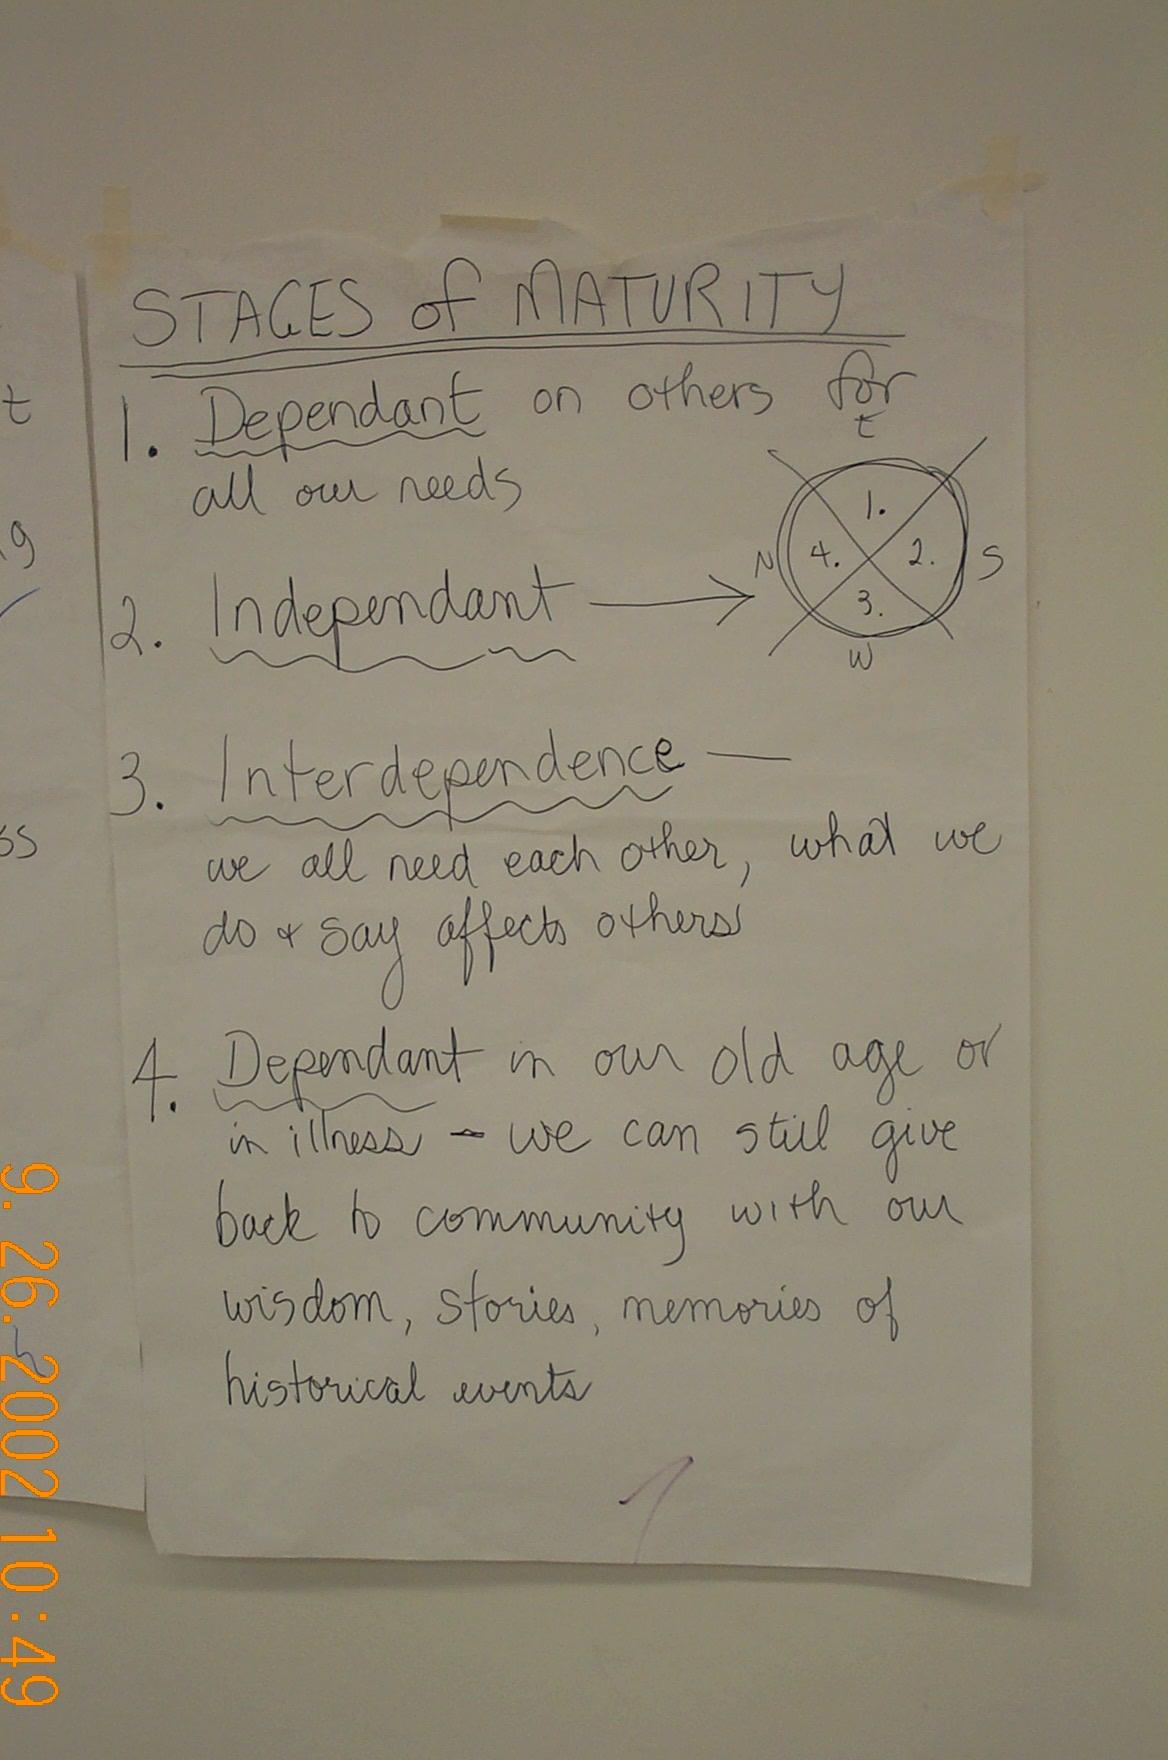 STAGES of MATURITY
1. Dependant on others for
all our needs
E
1.
N 4. 2. S
3.
W
2. Independant
3. Interdependence —
we all need each other, what we
do + say affects others
4. Dependant in our old age or
in illness - we can still give
back to community with our
wisdom, stories, memories of
historical events
t
g
ss
9.26.2002 10:49